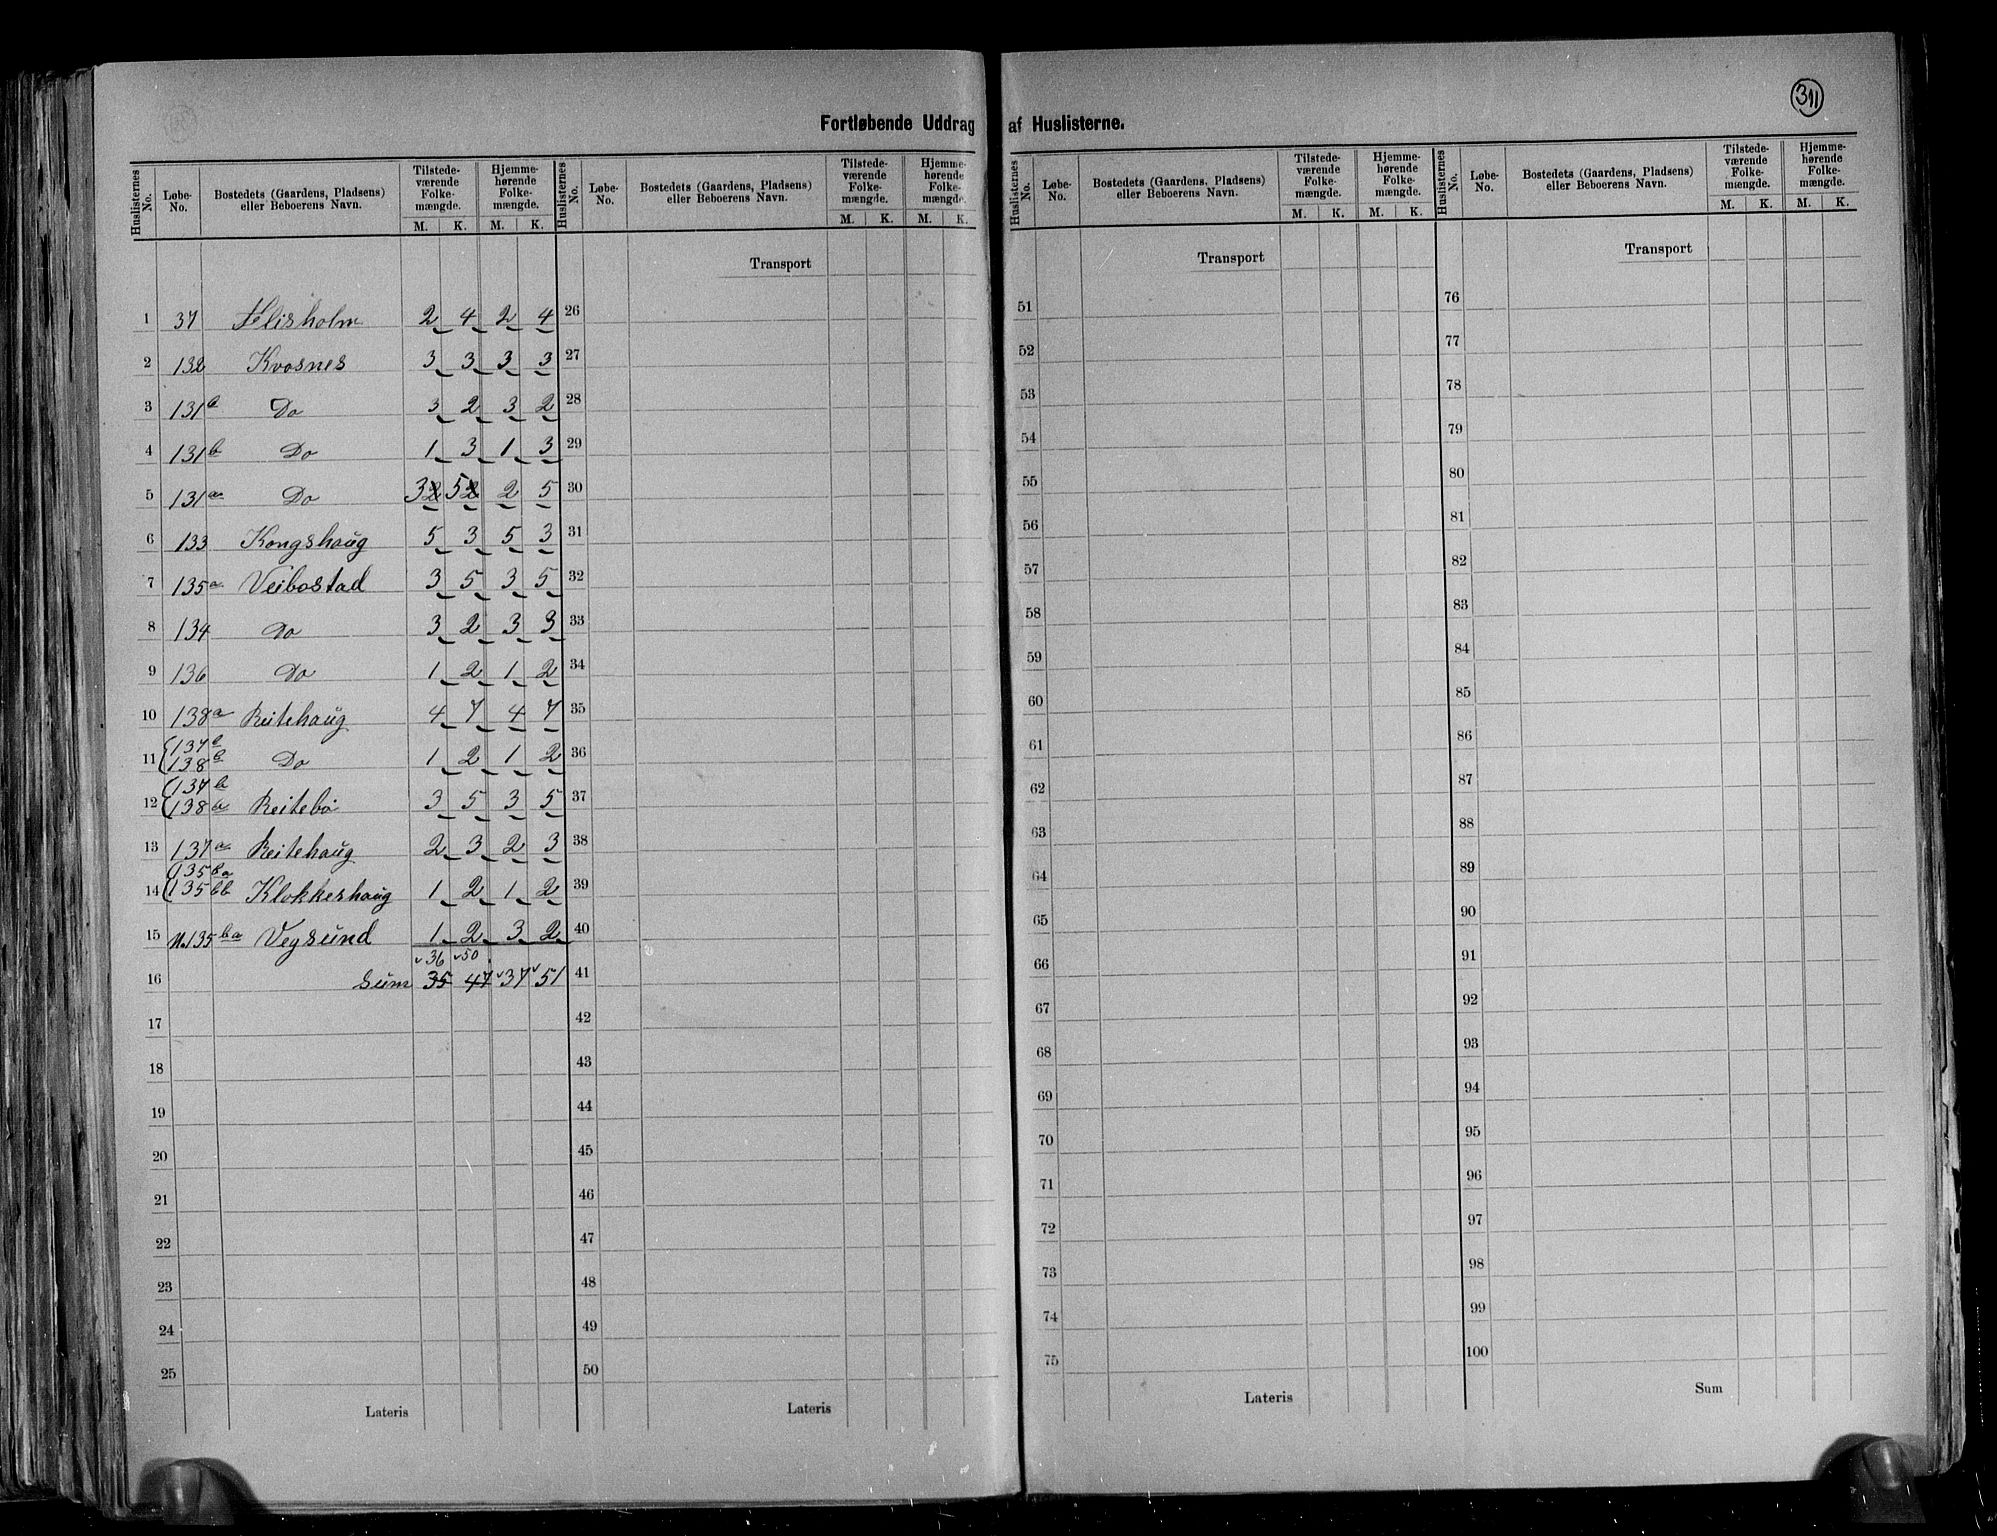 311
Fortløbende Uddrag af Huslisterne.
Huslisternes No. Løbe-No. Bostedets (Gaardens, Pladsens) eller Beboerens Navn. Tilstedeværende Folkemængde. M. K. Hjemmehørende Folkemængde. M. K.
Huslisternes No. Løbe-No. Bostedets (Gaardens, Pladsens) eller Beboerens Navn. Tilstedeværende Folkemængde. M. K. Hjemmehørende Folkemængde. M. K.
Huslisternes No. Løbe-No. Bostedets (Gaardens, Pladsens) eller Beboerens Navn. Tilstedeværende Folkemængde. M. K. Hjemmehørende Folkemængde. M. K.
Huslisternes No. Løbe-No. Bostedets (Gaardens, Pladsens) eller Beboerens Navn. Tilstedeværende Folkemængde. M. K. Hjemmehørende Folkemængde. M. K.
1 37 2 4 2 4
2 132 Kvasnes 3 3 3 3
3 131 b Do 3 2 3 2
4 131 b Do 1 3 1 3
5 131 a Do 3 2 5 2 2 5
6 133 Kongshaug 5 3 5 3
7 135 a Veibostad 3 5 3 5
8 134 Do 3 2 3 3
9 136 Do 1 2 1 2
10 138 a Reitehaug 4 7 4 7
11 137 b 138 b Do 1 2 1 2
12 137 b 138 a Reitebø 3 5 3 5
13 137 a Reitehaug 2 3 2 3
14 135 ba 135 bb Klokkeshaug 1 2 1 2
15 N. 135 ba Vegsund 1 2 3 2
36 50
16 Sum 35 47 37 51
17
18
19
20
21
22
23
24
25
Lateris
Transport
26
27
28
29
30
31
32
33
34
35
36
37
38
39
40
41
42
43
44
45
46
47
48
49
50
Lateris
Transport
51
52
53
54
55
56
57
58
59
60
61
62
63
64
65
66
67
68
69
70
71
72
73
74
75
Lateris
Transport
76
77
78
79
80
81
82
83
84
85
86
87
88
89
90
91
92
93
94
95
96
97
98
99
100
Sum